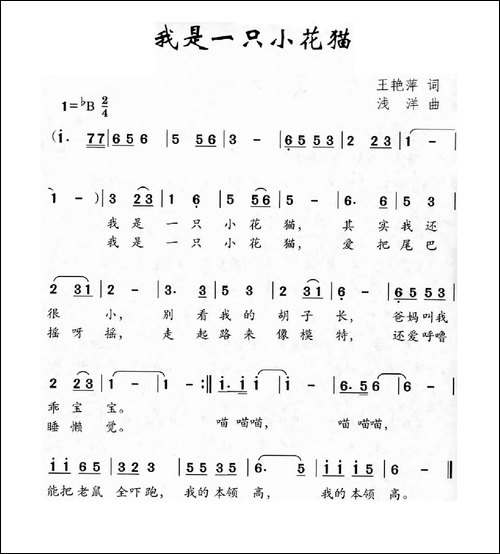 我是一只小花猫
王艳萍 词
1=♭B 2/4
浅 洋 曲
(i. 77 | 656 | 5 56 | 3 - | 6553 | 2 23 | 1 - |
1 - ) | 3 23 | 1 6 | 5 56 | 5 - | 6. 6 | 5 3 |
我 是 一 只 小 花 猫, 其 实 我 还
我 是 一 只 小 花 猫, 爱 把 尾 巴
2 31 | 2 - | 3. 3 | 5 3 | 2 31 | 6 - | 6553 |
很 小, 别 看 我 的 胡 子 长, 爸妈叫我
摇 呀 摇, 走 起 路 来 像 模 特, 还爱呼噜
2 23 | 1 - | 1 - :‖ i. i | i i | i - | 6. 56 | 6 - |
乖 宝 宝。
睡 懒 觉。 喵 喵喵, 喵 喵喵,
i i 6 5 | 3 2 3 | 5 5 3 5 | 6. 5 | i i 5 6 | i - ‖
能把老鼠 全吓跑, 我的本领 高, 我的本领 高。